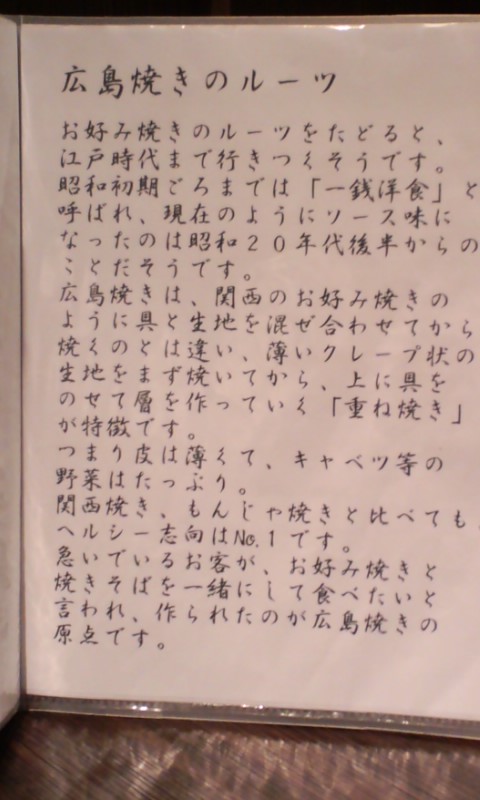 広島焼きのルーツ
お好み焼きのルーツをたどると、
江戸時代まで行きつくそうです。
昭和初期ごろまでは「一銭洋食」と
呼ばれ、現在のようにソース味に
なったのは昭和２０年代後半からの
ことだそうです。
広島焼きは、関西のお好み焼きの
ように具と生地を混ぜ合わせてから
焼くのとは違い、薄いクレープ状の
生地をまず焼いてから、上に具を
のせて層を作っていく「重ね焼き」
が特徴です。
つまり皮は薄くて、キャベツ等の
野菜はたっぷり。
関西焼き、もんじゃ焼きと比べても、
ヘルシー志向はNo.１です。
急いでいるお客が、お好み焼きと
焼きそばを一緒にして食べたいと
言われ、作られたのが広島焼きの
原点です。